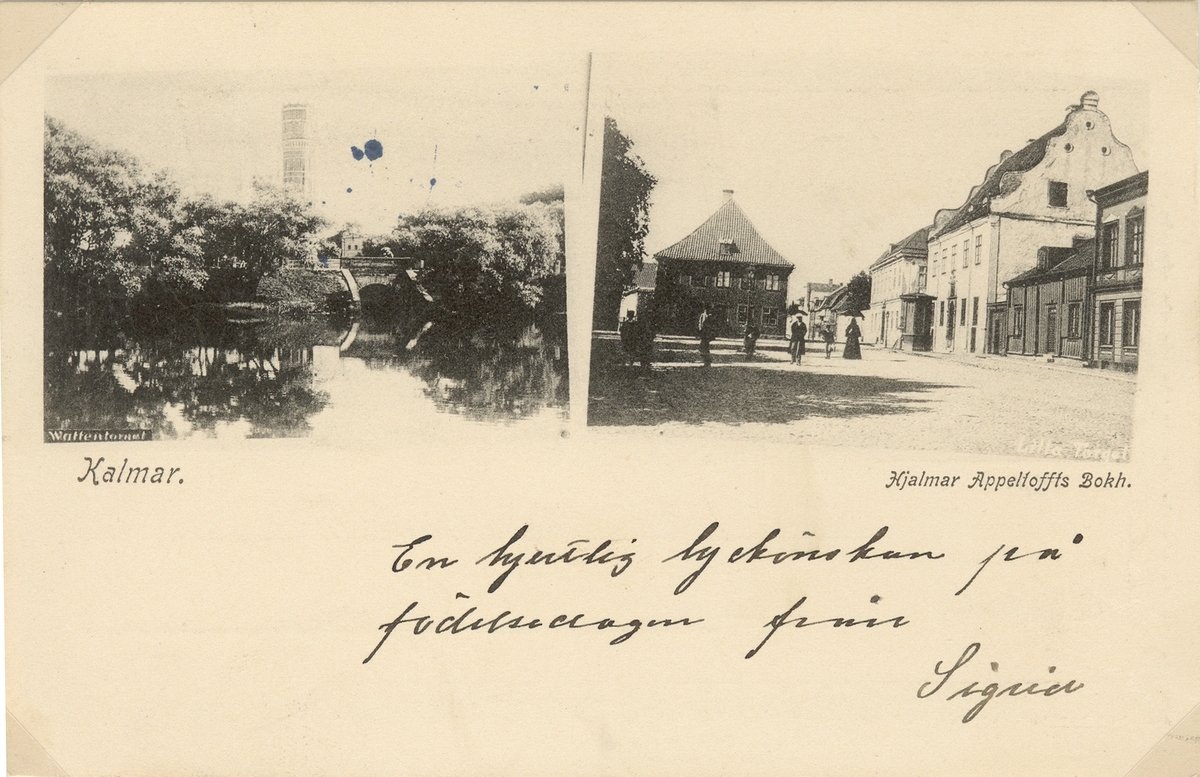 Wattentornet
Lilla Torget
Kalmar.
Hjalmar Appeltoffts Bokh.
En hjertlig lyckönskan på
födelsedagen från
Sigrid